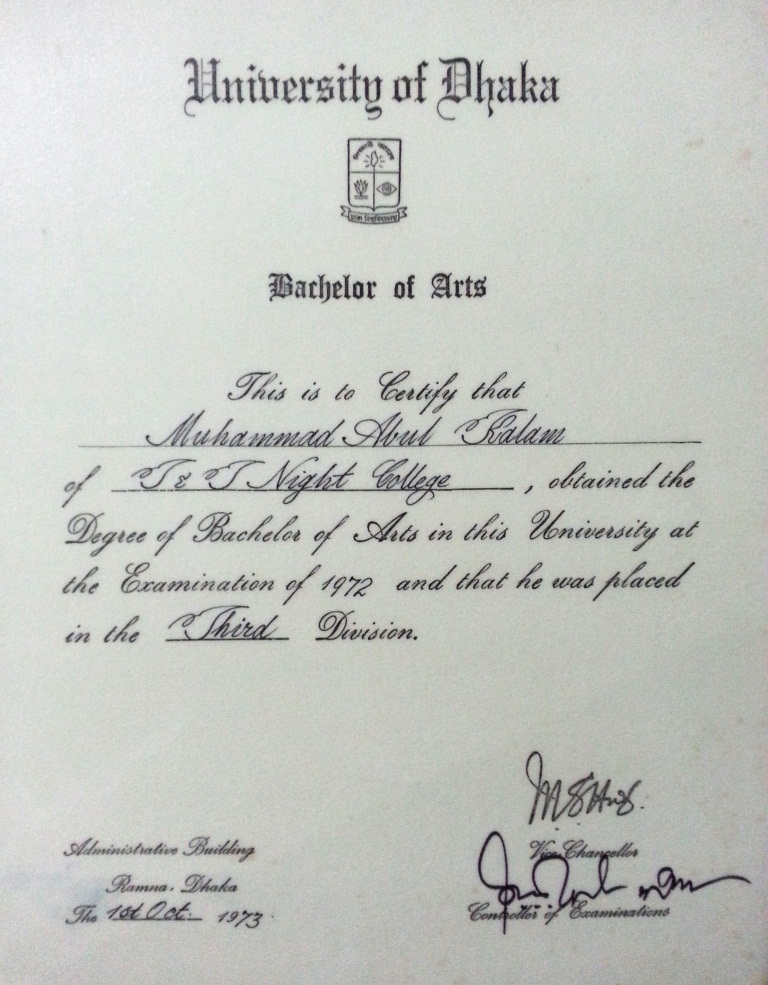 University of Dhaka
Bachelor of Arts
This is to Certify that
Muhammad Abul Kalam
of T & T Night College, obtained the
Degree of Bachelor of Arts in this University at
the Examination of 1972 and that he was placed
in the Third Division.
Administrative Building
Ramna, Dhaka
The 1st Oct. 1973
Vice Chancellor
Controller of Examinations